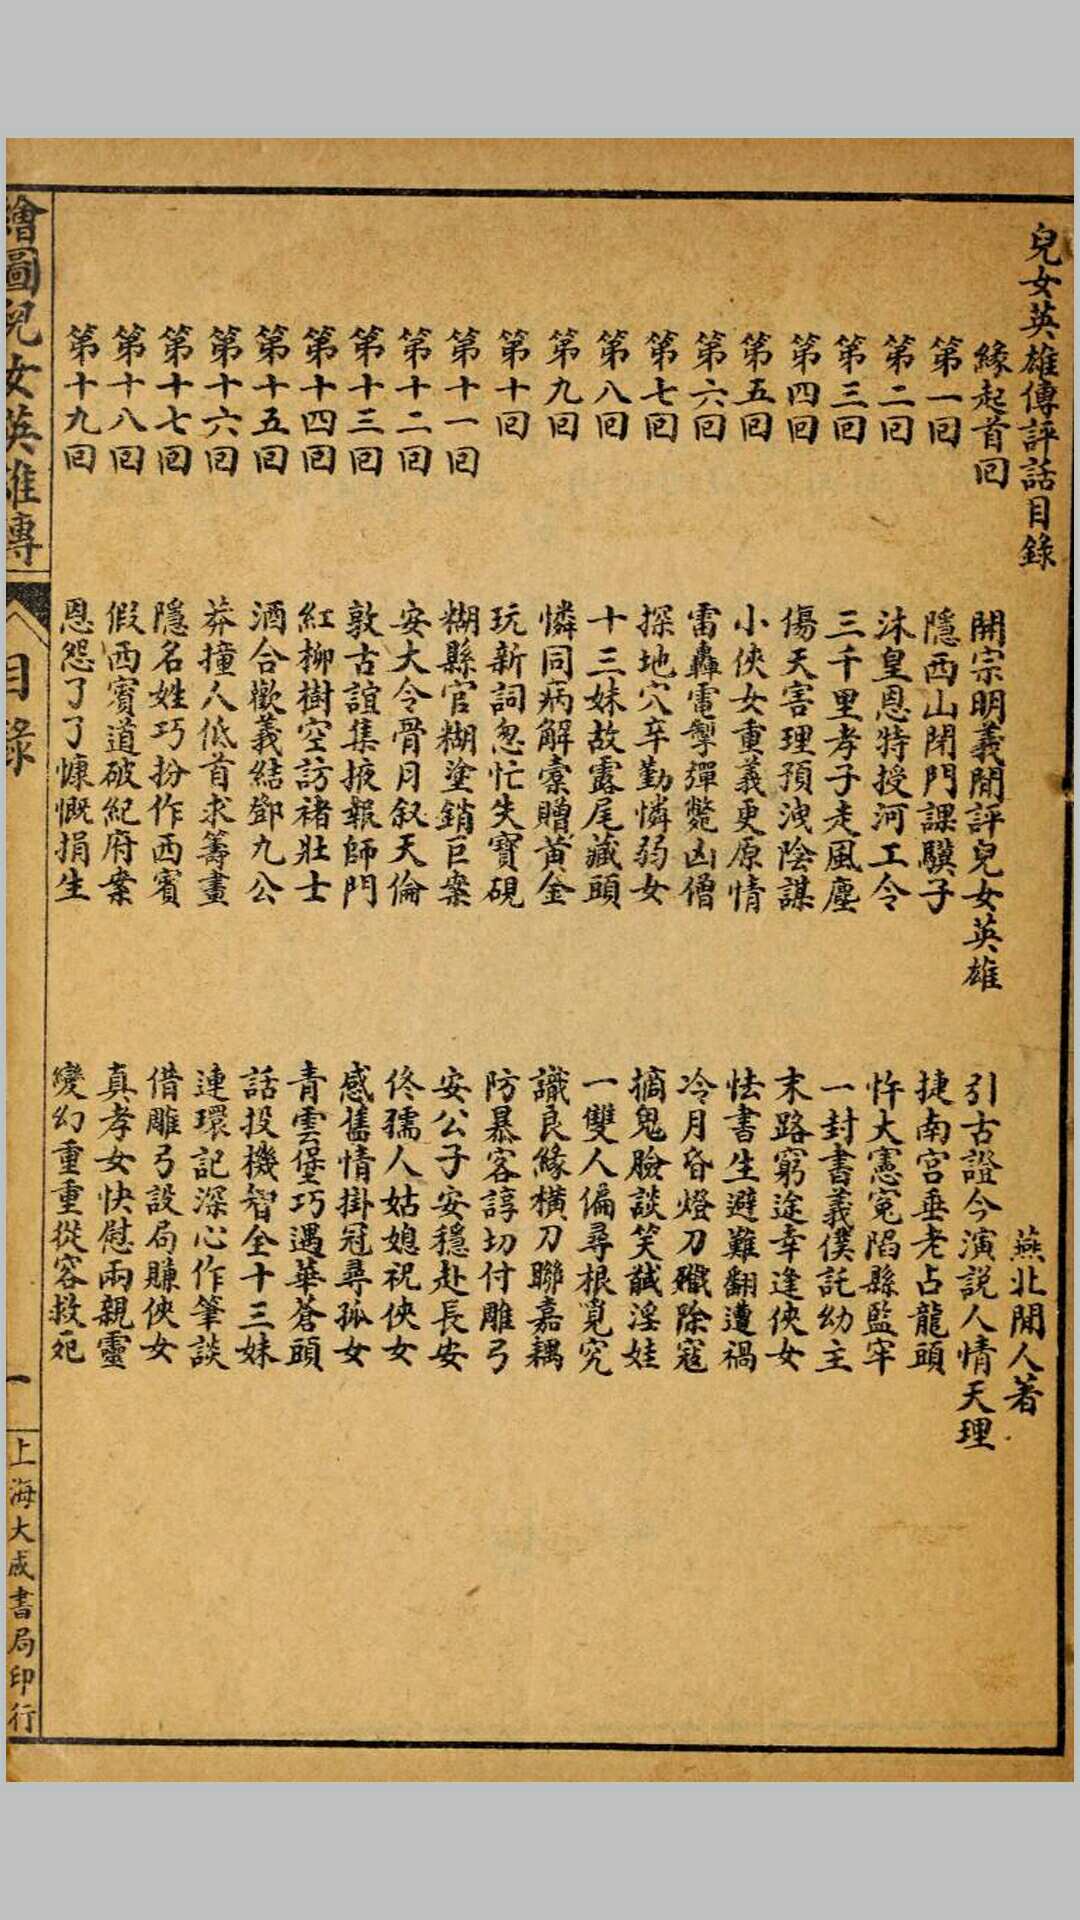 兒女英雄傳評話目錄 燕北閒人著
緣起首回 開宗明義閒評兒女英雄 引古證今演説人情天理
第一回 隱西山閉門課驥子 捷南宮垂老占龍頭
第二回 沐皇恩特授河工令 忤大憲冤陷縣監牢
第三回 三千里孝子走風塵 一封書義僕託幼主
第四回 傷天害理預洩陰謀 末路窮途幸逢俠女
第五回 小俠女重義更原情 怯書生避難翻遭禍
第六回 雷轟電掣彈斃凶僧 冷月昏燈刀殲除寇
第七回 探地穴辛勤憐弱女 摘鬼臉談笑馘淫娃
第八回 十三妹故露尾藏頭 一雙人偏尋根覓究
第九回 憐同病解橐贈黃金 識良緣橫刀聯嘉耦
第十回 玩新詞怱忙失寶硯 防暴客諄切付雕弓
第十一回 糊縣官糊塗銷巨案 安公子安穩赴長安
第十二回 安大令骨月叙天倫 佟孺人姑媳祝俠女
第十三回 敦古誼集掖報師門 感舊情掛冠尋孤女
第十四回 紅柳樹空訪褚壯士 青雲堡巧遇華蒼頭
第十五回 酒合歡義結鄧九公 話投機智全十三妹
第十六回 莽撞人低首求籌畫 連環記深心作筆談
第十七回 隱名姓巧扮作西賓 借雕弓設局賺俠女
第十八回 假西賓道破紀府案 真孝女快慰兩親靈
第十九回 恩怨了了慷慨捐生 變幻重重從容救死
繪圖兒女英雄傳 目錄 一 上海大成書局印行